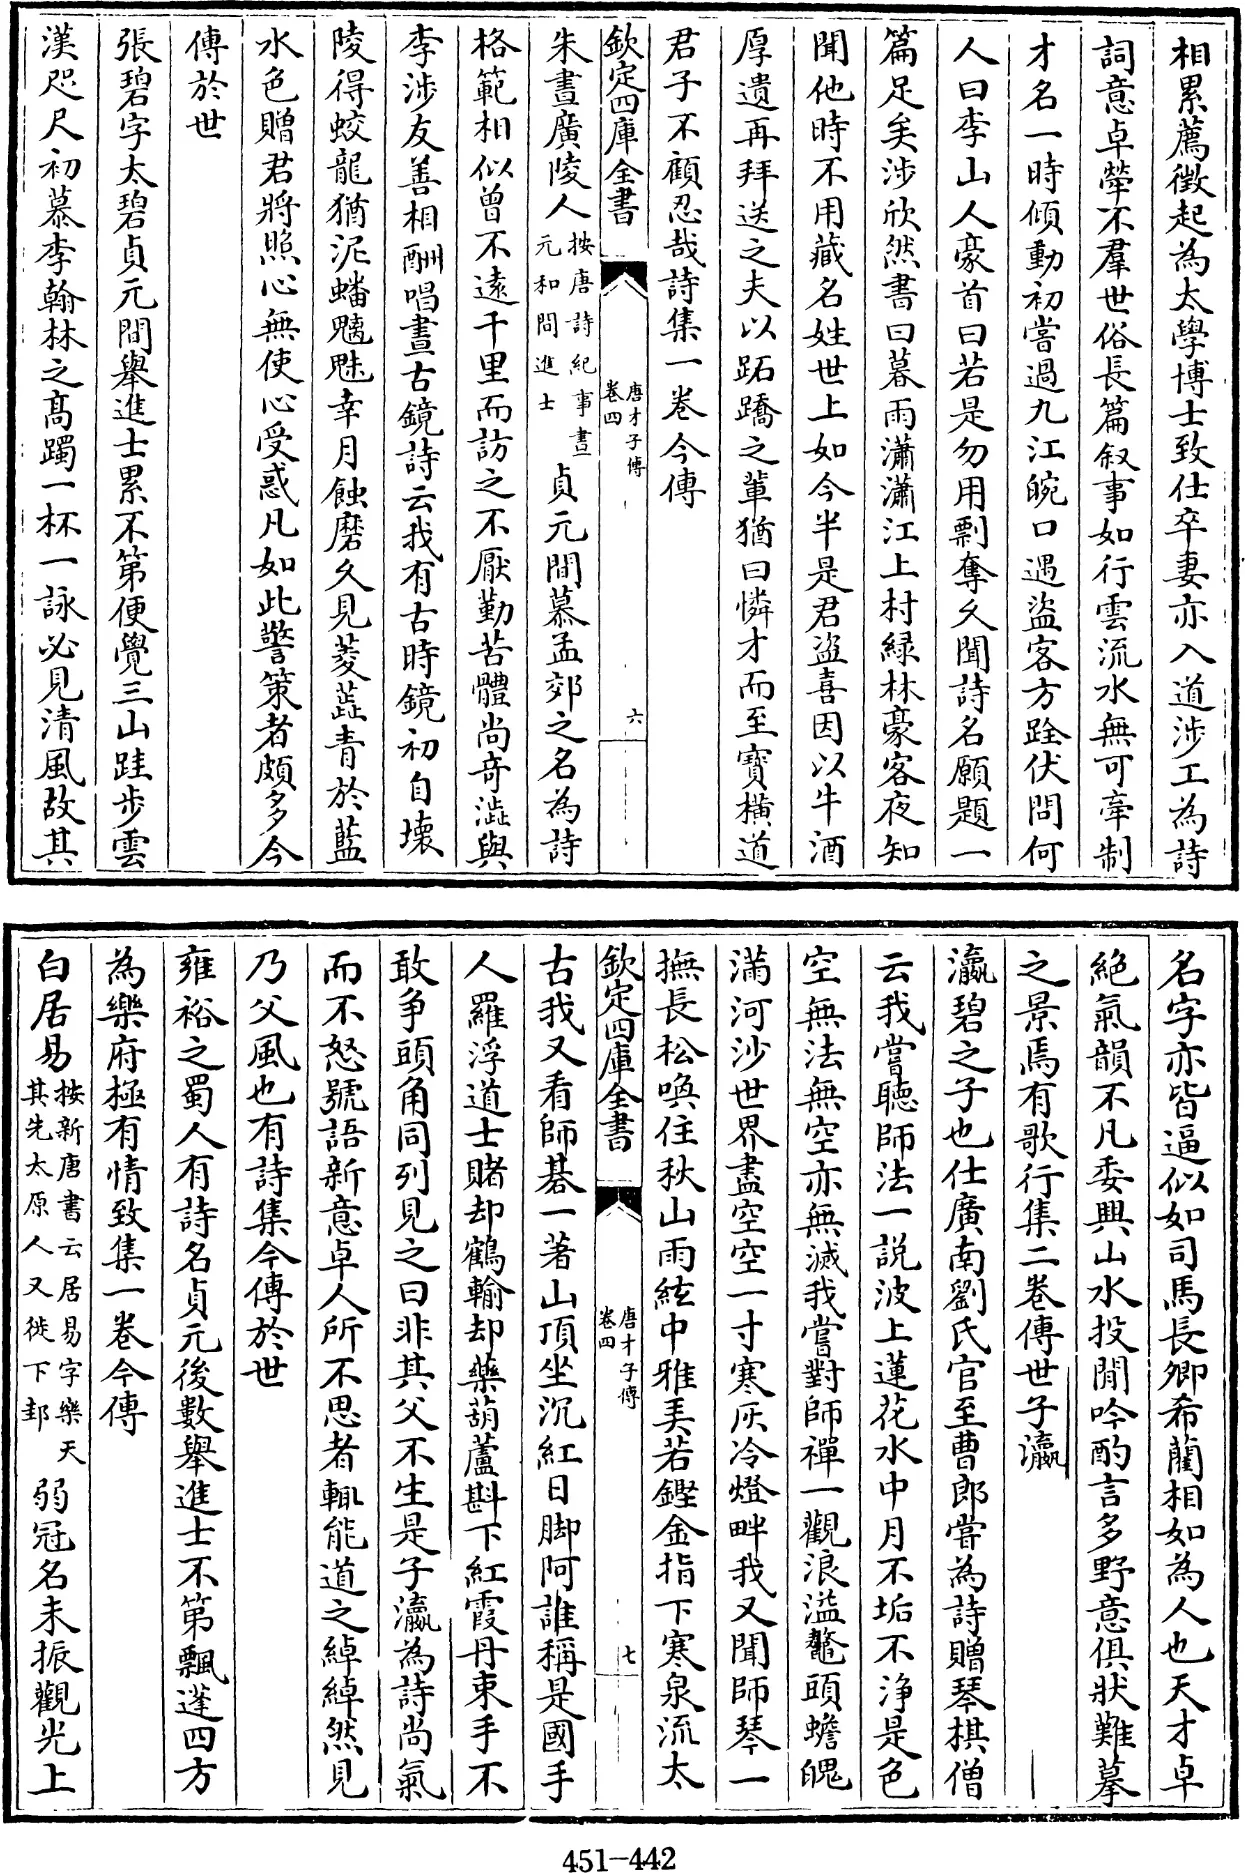 相累薦徵起為太學博士致仕卒妻亦入道涉工為詩
詞意卓犖不羣世俗長篇叙事如行雲流水無可牽制
才名一時傾動初嘗過九江皖口遇盜客方跧伏問何
人曰李山人豪首曰若是勿用剽奪久聞詩名願題一
篇足矣涉欣然書曰暮雨瀟瀟江上村緑林豪客夜知
聞他時不用藏名姓世上如今半是君盜喜因以牛酒
厚遺再拜送之夫以跖蹻之輩猶曰憐才而至寳横道
君子不顧忍哉詩集一卷今傳
欽定四庫全書
唐才子傳
卷四
六
朱晝廣陵人
按唐詩紀事晝
元和間進士
貞元間慕孟郊之名為詩
格範相似曾不遠千里而訪之不厭勤苦體尚奇澁與
李涉友善相酬唱晝古鏡詩云我有古時鏡初自壞
陵得蛟龍猶泥蟠魑魅幸月蝕磨久見菱蕋青於藍
水色贈君將照心無使心受惑凡如此警策者頗多今
傳於世
張碧字太碧貞元間舉進士累不第便覺三山跬步雲
漢咫尺初慕李翰林之髙躅一杯一詠必見清風故其
名字亦皆逼似如司馬長卿希藺相如為人也天才卓
絶氣韻不凡委興山水投閒吟酌言多野意俱狀難摹
之景焉有歌行集二卷傳世子瀛
瀛碧之子也仕廣南劉氏官至曹郎嘗為詩贈琴棋僧
云我嘗聽師法一説波上蓮花水中月不垢不淨是色
空無法無空亦無滅我嘗對師禪一觀浪溢鼇頭蟾魄
滿河沙世界盡空空一寸寒灰冷燈畔我又聞師琴一
撫長松喚住秋山雨絃中雅美若鏗金指下寒泉流太
欽定四庫全書
唐才子傳
卷四
七
古我又看師碁一著山頂坐沉紅日脚阿誰稱是國手
人羅浮道士賭却鶴輸却藥葫蘆斟下紅霞丹束手不
敢争頭角同列見之曰非其父不生是子瀛為詩尚氣
而不怒號語新意卓人所不思者輒能道之綽綽然見
乃父風也有詩集今傳於世
雍裕之蜀人有詩名貞元後數舉進士不第飄蓬四方
為樂府極有情致集一卷今傳
白居易
按新唐書云居易字樂天
其先太原人又徙下邽
弱冠名未振觀光上
451-442